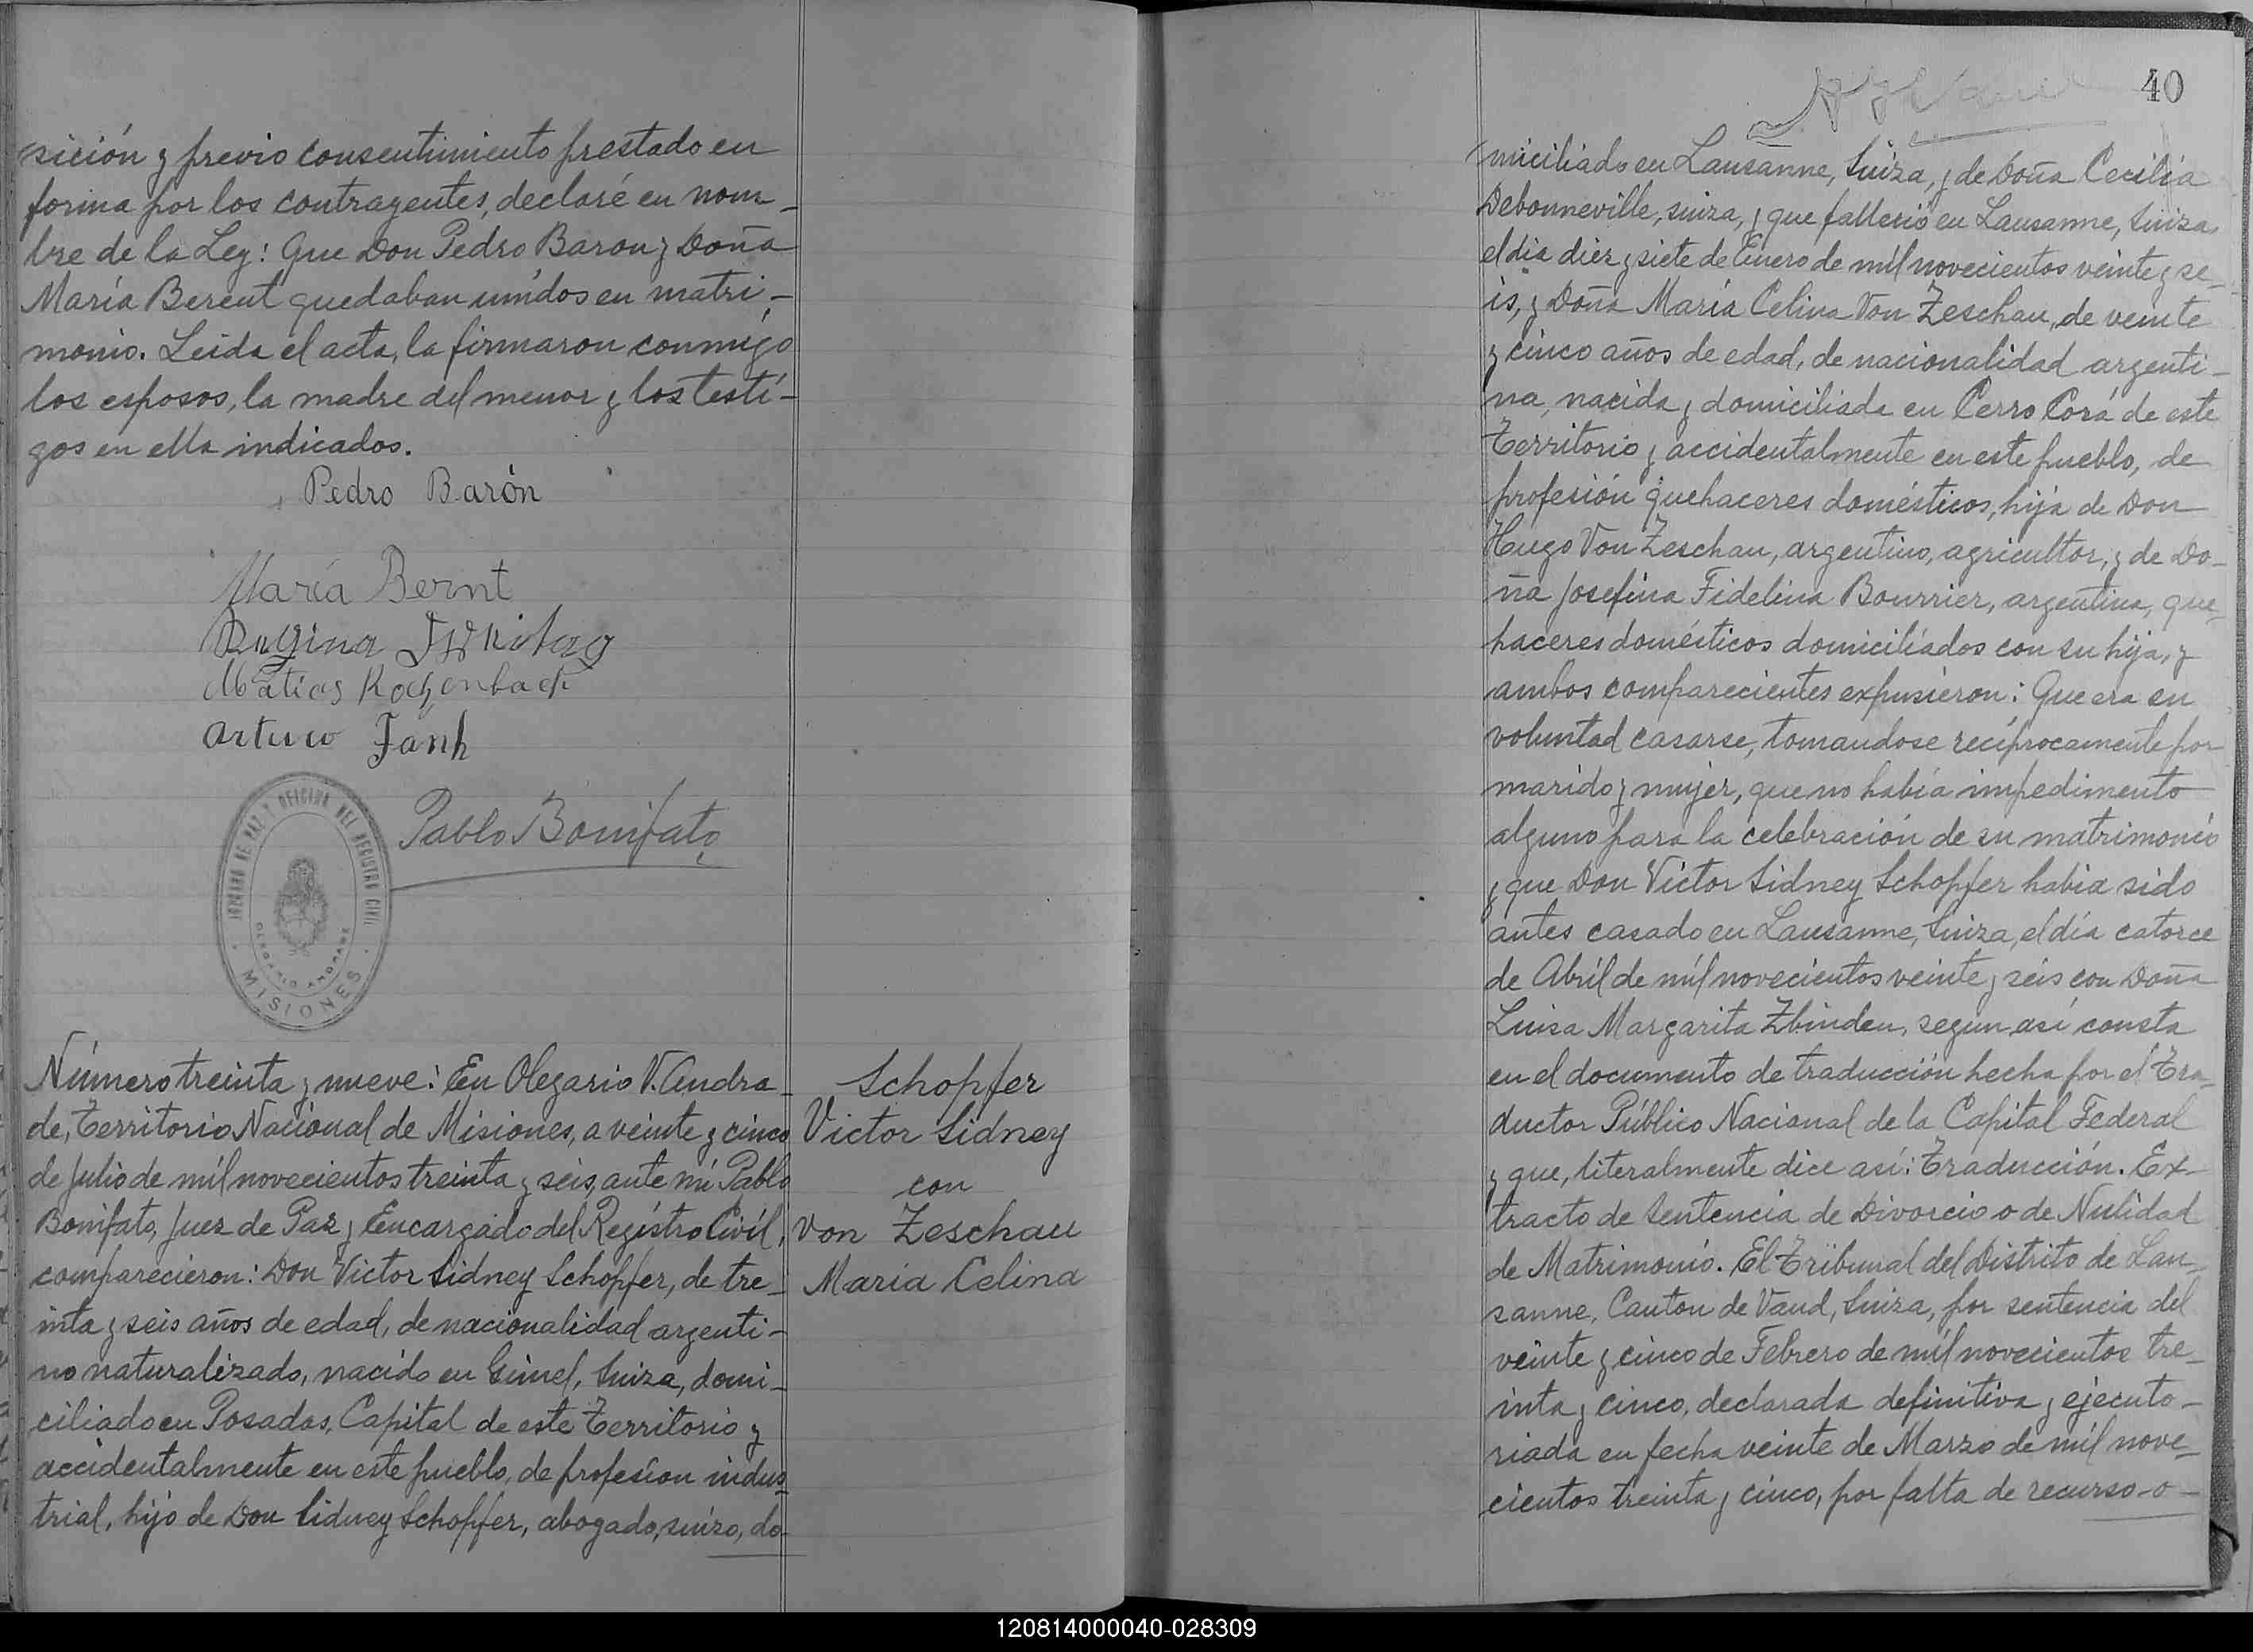 sición y previo consentimiento prestado en
forma por los contrayentes, declaré en nom-
bre de la Ley: Que Don Pedro Baron y Doña
María Berent quedaban unidos en matri-
monio. Leida el acta, la firmaron conmigo
los esposos, la madre del menor y los testi-
gos en ella indicados.
Pedro Barón
María Bernt
Regina
Matias
Arturo Fank
Pablo Bonifato
JUZGADO DE PAZ Y OFICINA DEL REGISTRO CIVIL
OLEGARIO ANDRADE
MISIONES
Número treinta y nueve: En Olegario V. Andra-
de, Territorio Nacional de Misiones, a veinte y cinco
de Julio de mil novecientos treinta y seis, ante mí Pablo
Bonifato, Juez de Paz y Encargado del Registro Civil,
comparecieron: Don Victor Sidney Schopfer, de tre-
inta y seis años de edad, de nacionalidad argenti-
no naturalizado, nacido en Gimel, Suiza, domi-
ciliado en Posadas, Capital de este Territorio y
accidentalmente en este pueblo, de profesion indus-
trial, hijo de Don Sidney Schopfer, abogado, suizo, do-
Schopfer
Victor Sidney
con
von Zeschau
Maria Celina
40
miciliado en Lausanne, Suiza, y de Doña Cecilia
Debonneville, suiza, y que fallesió en Lausanne, Suiza,
el dia diez y siete de Enero de mil novecientos veinte y se-
is, y Doña María Celina Von Zeschau, de veinte
y cinco años de edad, de nacionalidad argenti-
na, nacida y domiciliada en Cerro Corá de este
Territorio y accidentalmente en este pueblo, de
profesión quehaceres domésticos, hija de Don
Hugo Von Zeschau, argentino, agricultor, y de Do-
ña Josefina Fidelina Bourrier, argentina, que-
haceres domésticos domiciliados con su hija, y
ambos comparecientes expusieron: Que era su
voluntad casarse, tomandose recíprocamente por
marido y mujer, que no había impedimento
alguno para la celebración de su matrimonio
y que Don Victor Sidney Schopfer habia sido
antes casado en Lausanne, Suiza, el día catorce
de Abril de mil novecientos veinte y seis con Doña
Luisa Margarita Zbinden, segun así consta
en el documento de traducción hecha por el Tra-
ductor Público Nacional de la Capital Federal
y que, literalmente dice así: Traducción. Ex-
tracto de Sentencia de Divorcio o de Nulidad
de Matrimonio. El Tribunal del Distrito de Lau-
sanne, Canton de Vaud, Suiza, por sentencia del
veinte y cinco de Febrero de mil novecientos tre-
inta y cinco, declarada definitiva y ejecuto-
riada en fecha veinte de Marzo de mil nove-
cientos treinta y cinco, por falta de recurso-o-
120814000040-028309